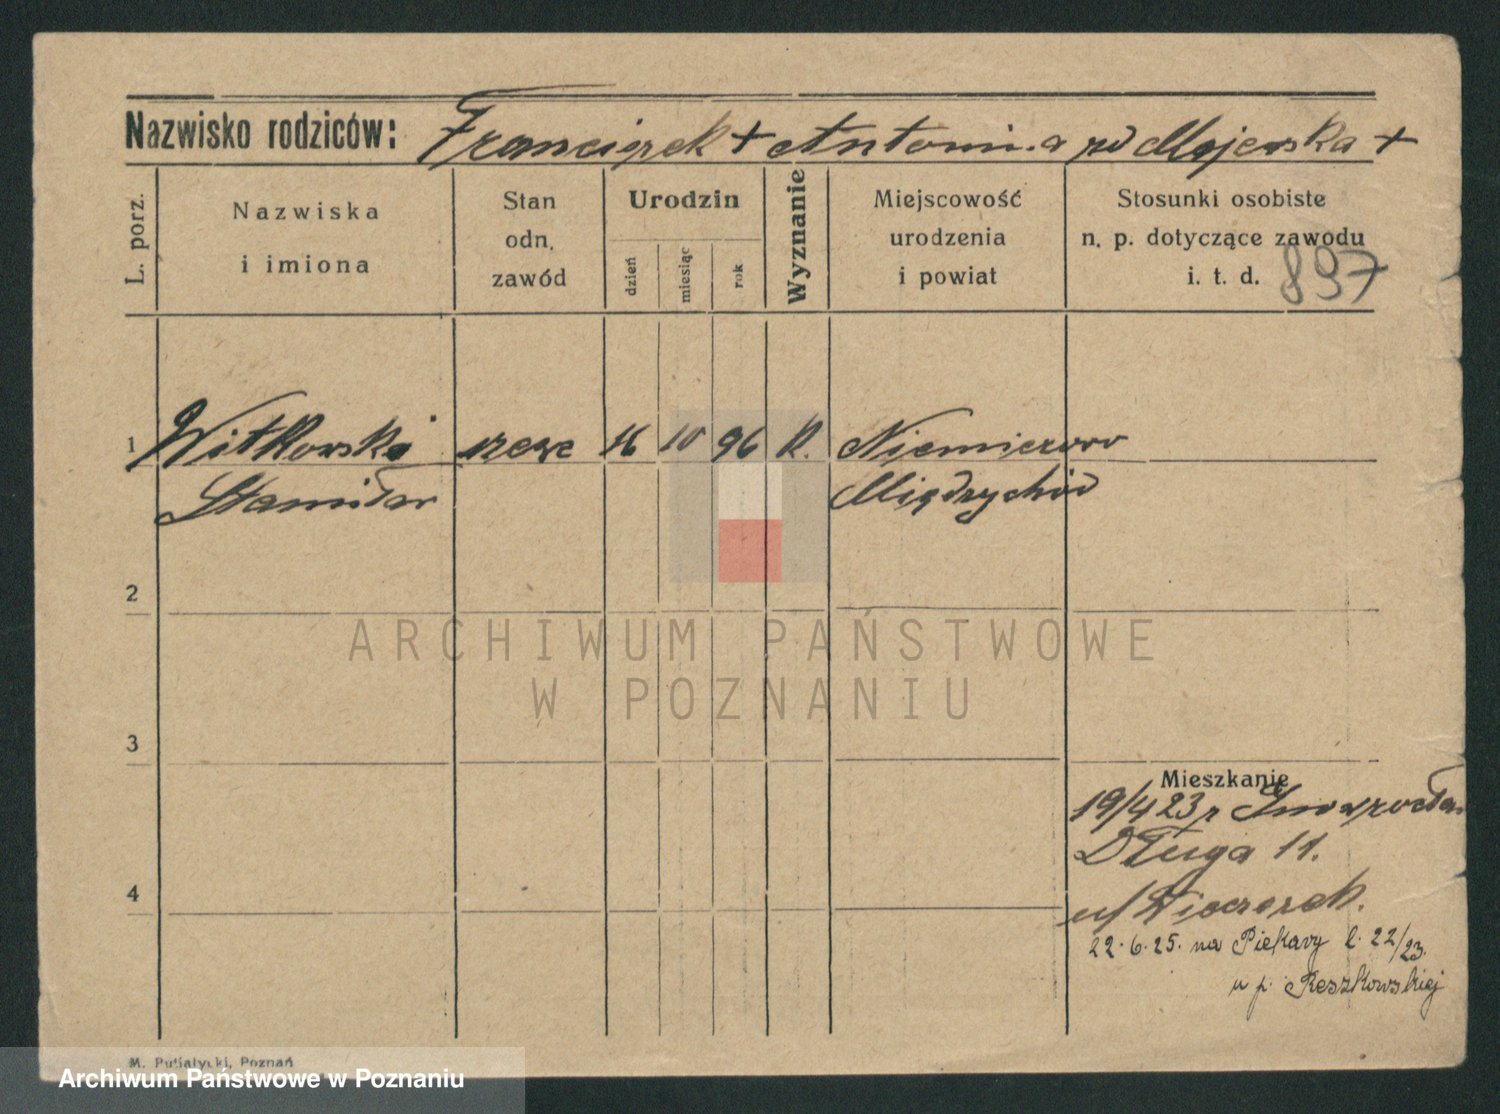 Nazwisko rodziców: Franciszek + Antonina zd Majewska +
L. porz.
Nazwiska
i imiona
Stan
odn.
zawód
Urodzin
dzień
miesiąc
rok
Wyznanie
Miejscowość
urodzenia
i powiat
Stosunki osobiste
n. p. dotyczące zawodu
i. t. d.
897
1 Witkowski 16 10 96 K. Niemierzewo
Stanisław Międzychód
2
3
4
Mieszkanie
19/4 23 r Inowrocław
Długa 11.
u/ Wieczorek.
22.6.25. na Piekary l. 22/23.
u p. Reszkowskiej
M. Putiatycki, Poznań
ARCHIWUM PAŃSTWOWE
W POZNANIU
Archiwum Państwowe w Poznaniu